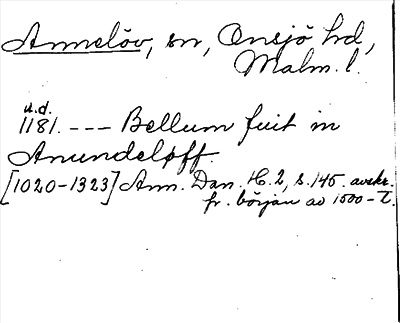 Annelöv, sn, Onsjö hd,
Malm. l.
u.d.
1181. --- Bellum fuit in
Anundeløff.
[1020-1323] Ann. Dan. H. 2, s. 145. avskr.
fr. början av 1500-t.